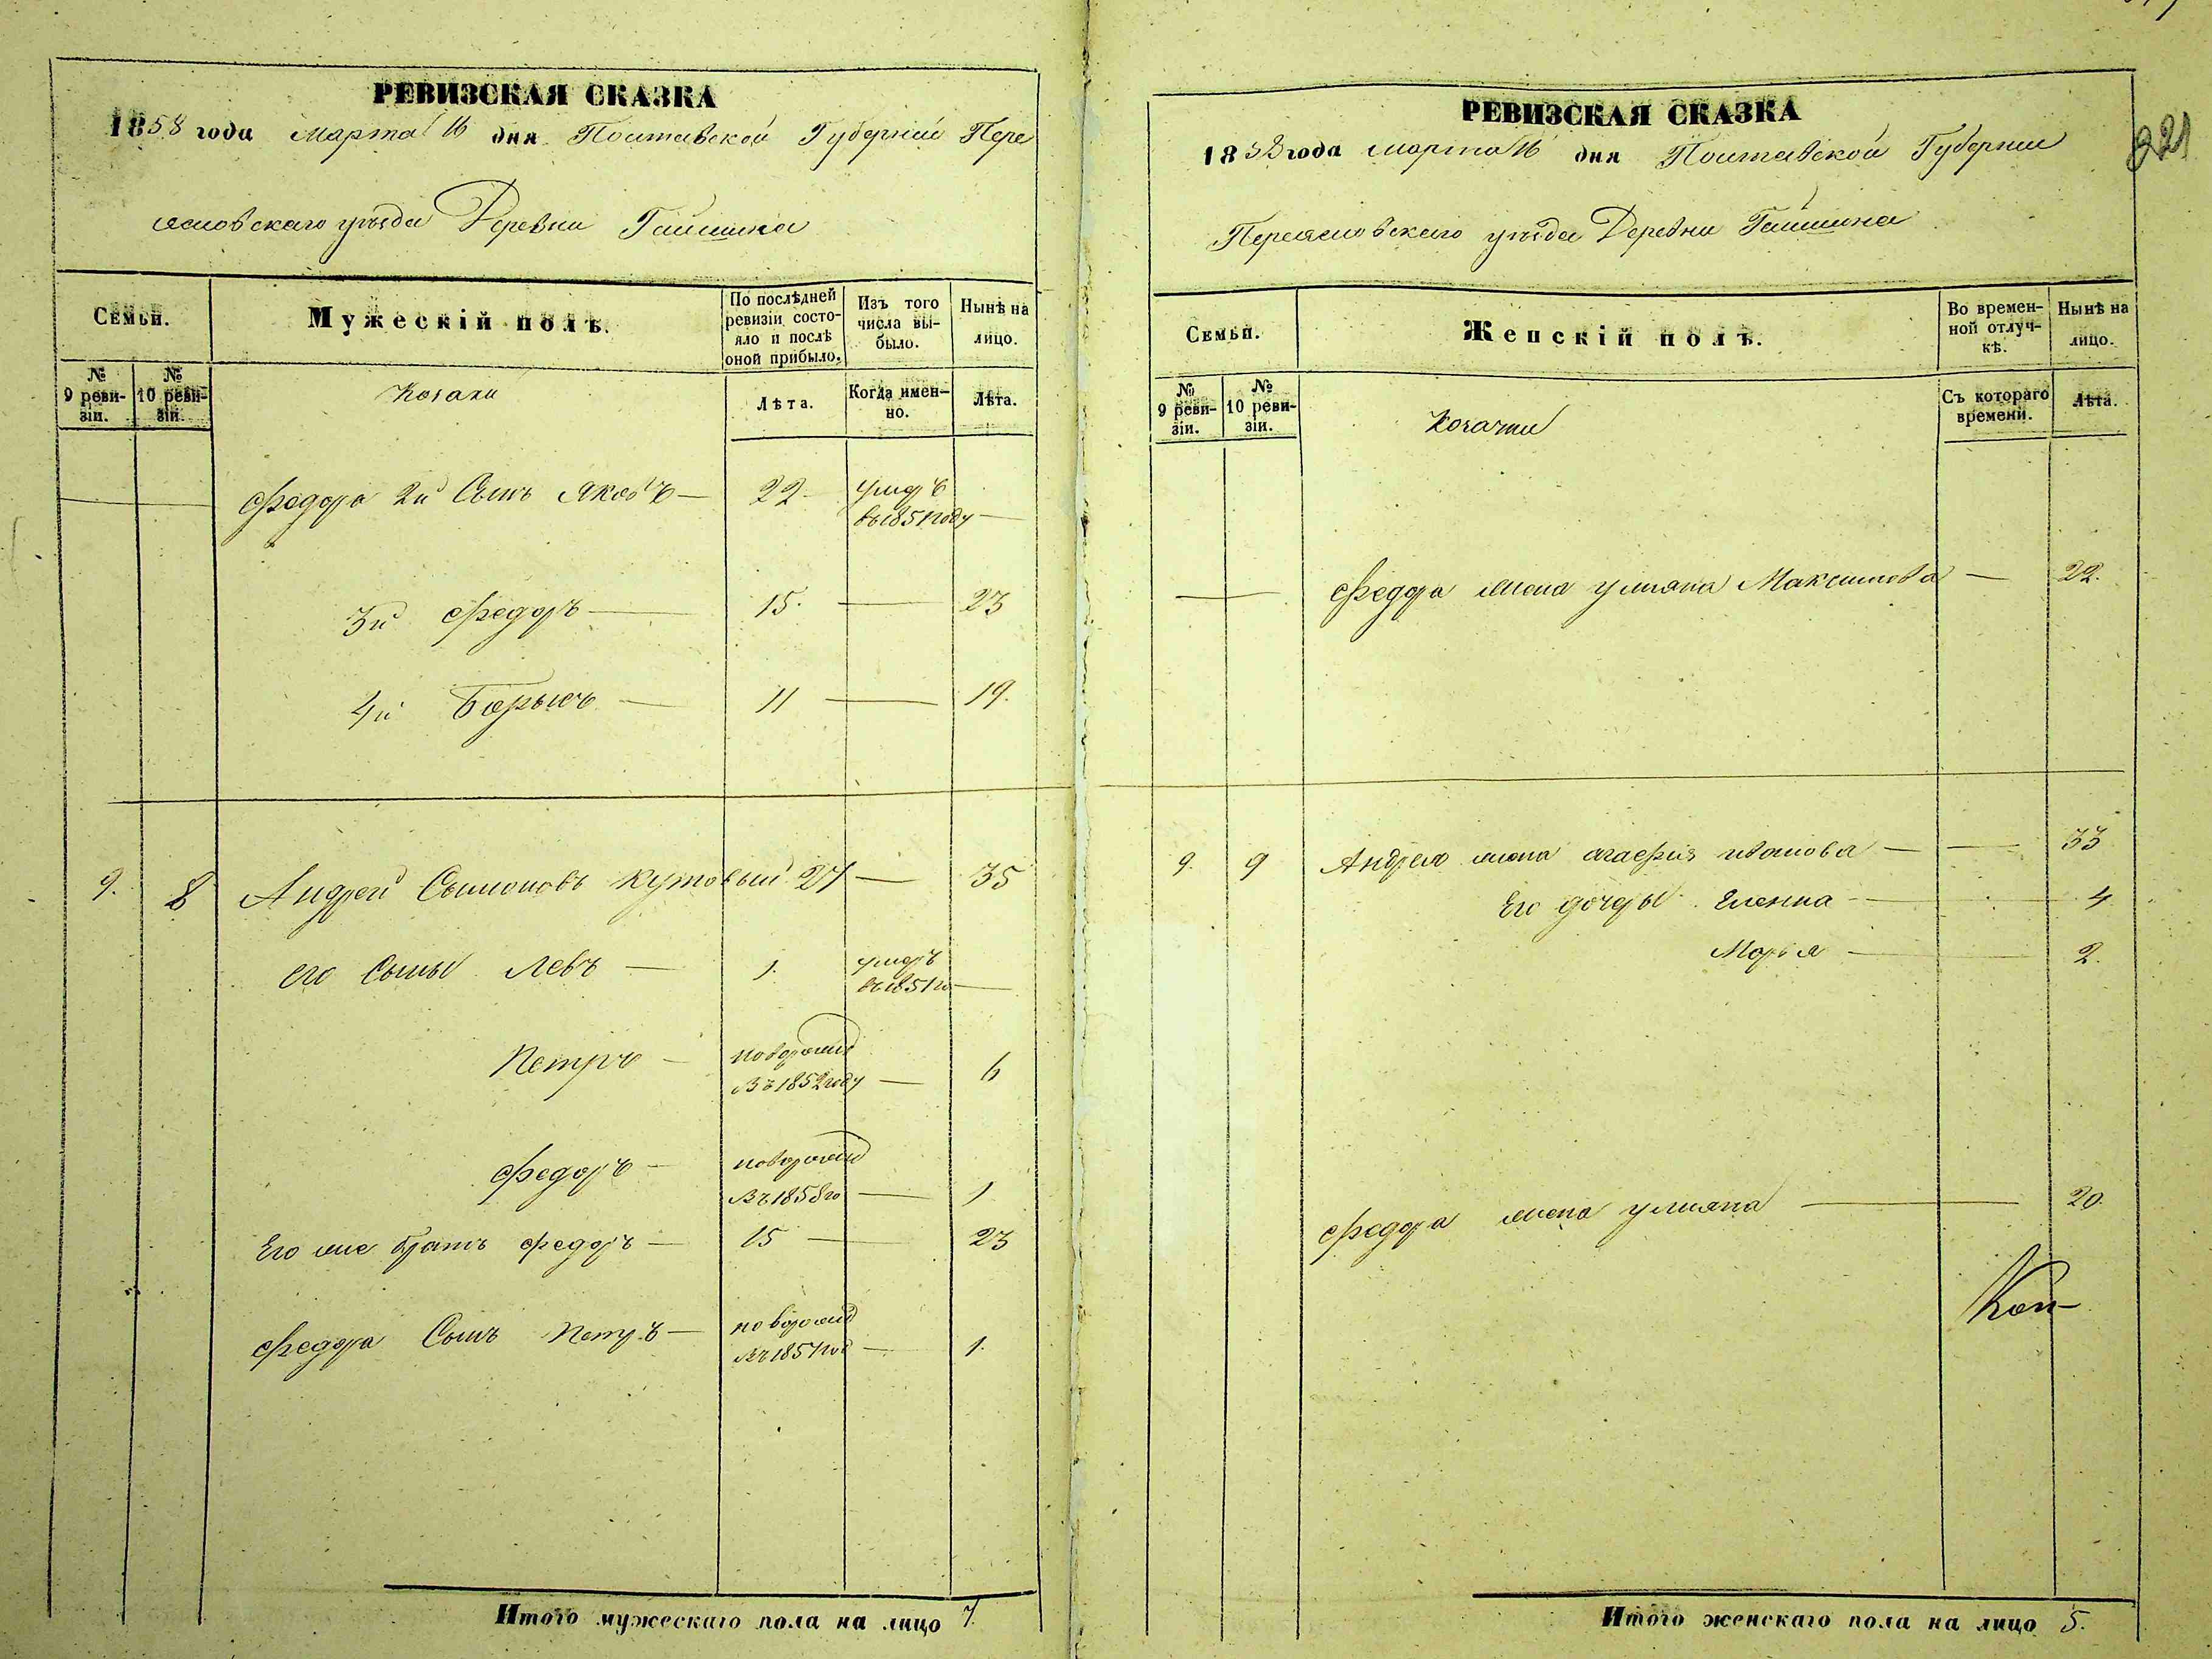 РЕВИЗСКАЯ СКАЗКА
1858 года марта 16 дня Полтавской Губернии Пере
яславскаго уѣзда Деревни Гайшина
Семьи.
Мужескій полъ.
По послѣдней ревизіи состояло и послѣ оной прибыло.
Изъ того числа выбыло.
Нынѣ на лицо.
№ 9 ревизіи.
№ 10 ревизіи.
Козаки
Лѣта.
Когда именно.
Лѣта.
Федора 2й Сынъ Яковъ — 22 умеръ
въ 1851 году —
3й Федоръ — 15. — 23
4й Борысъ — 11 — 19.
9. 8 Андрей Сымоновъ Кутовый 27 — 35
его Сыны Левъ — 1. умеръ
въ 1851 го —
Петръ — новорожд
Въ 1852 году — 6
Федоръ — новорожд
Въ 1858 го — 1
Его же братъ Федоръ — 15 — 23
Федора Сынъ Петръ — новорожд
Въ 1857 год — 1.
Итого мужескаго пола на лицо 7.
РЕВИЗСКАЯ СКАЗКА
1858 года марта 16 дня Полтавской Губернии
Переяславскаго уѣзда Деревни Гайшина
221
Семьи.
Женскій полъ.
Во временной отлучкѣ.
Нынѣ на лицо.
№ 9 ревизіи.
№ 10 ревизіи.
Козачки
Съ котораго времени.
Лѣта.
— Федора жена улияна Максимова — 22.
9. 9 Андрея жена агафия иванова — — 33
Его дочеры Еленна — 4
Марья — 2.
Федора жена улияна — 20.
Коп—
Итого женскаго пола на лицо 5.